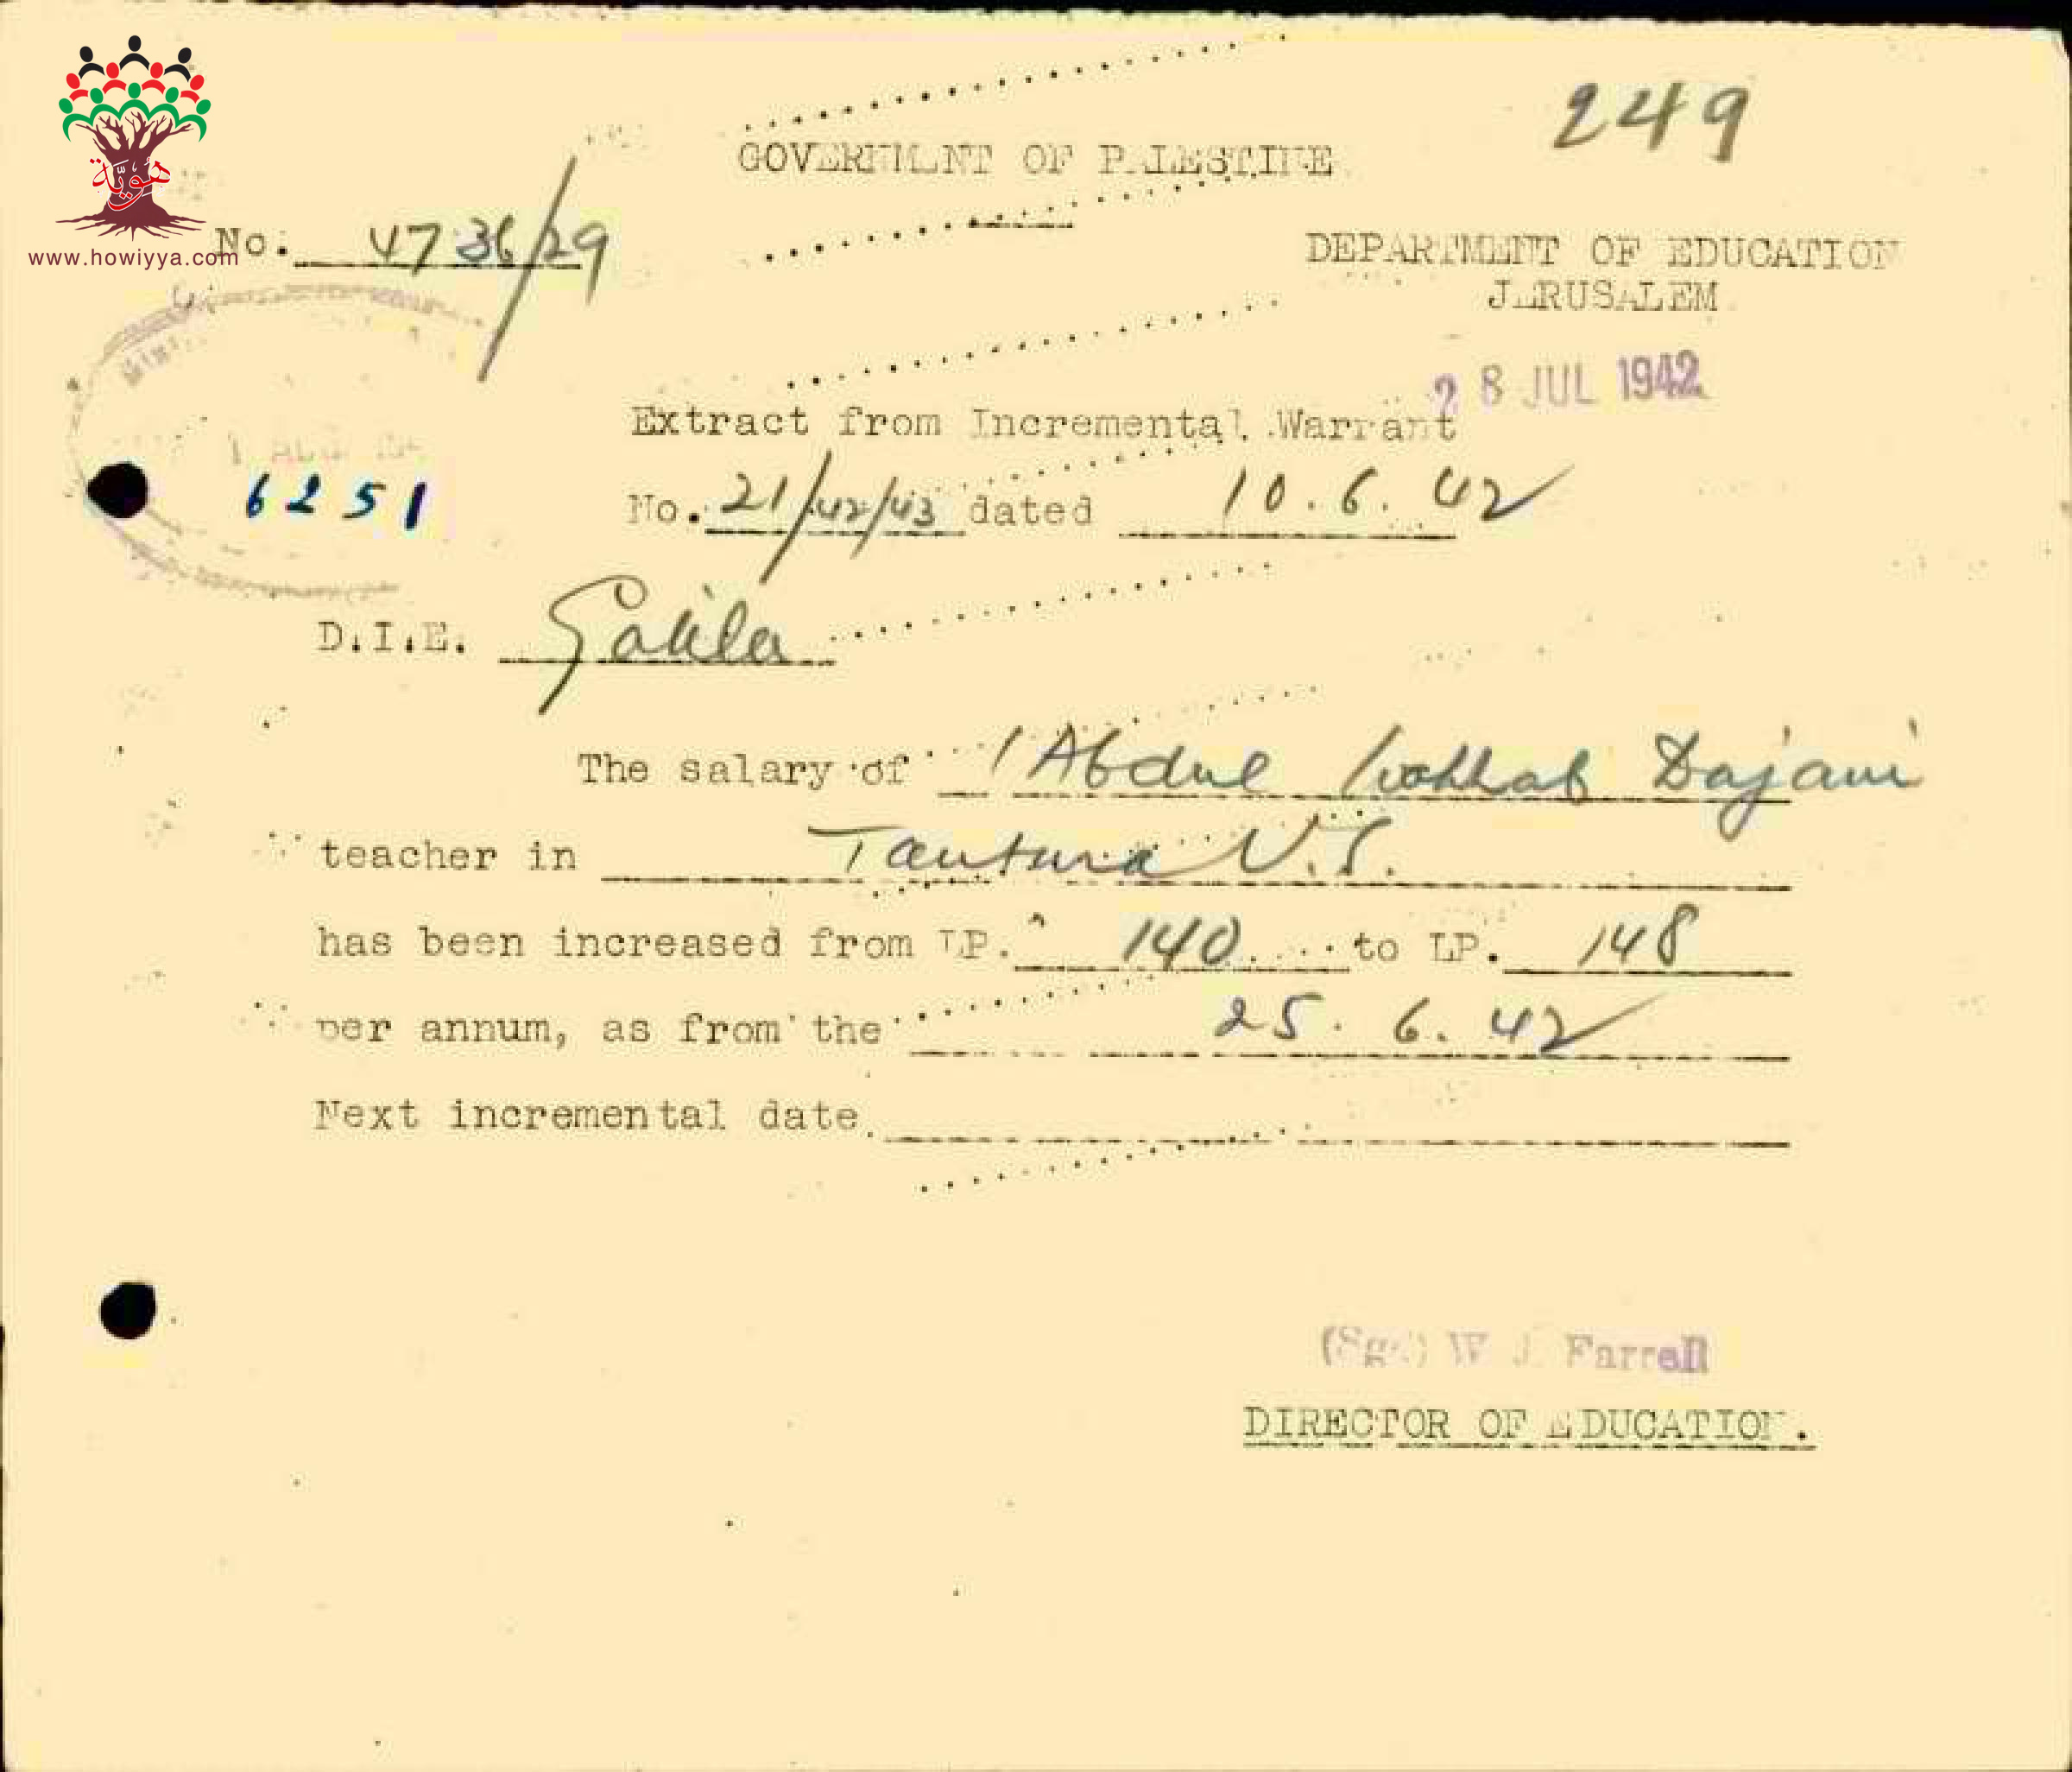 249
GOVERNMENT OF PALESTINE
هوية
www.howiyya.com
No. 4736/29
DEPARTMENT OF EDUCATION
JERUSALEM
28 JUL 1942
Extract from Incremental Warrant
6251
No. 21/42/43 dated 10.6.42
D.I.E. Galilee
The salary of 'Abdul Wahhab Dajani
teacher in Tantura V.S.
has been increased from LP. 140 to LP. 148
per annum, as from the 25.6.42
Next incremental date
(Sgd) W J Farrell
DIRECTOR OF EDUCATION.